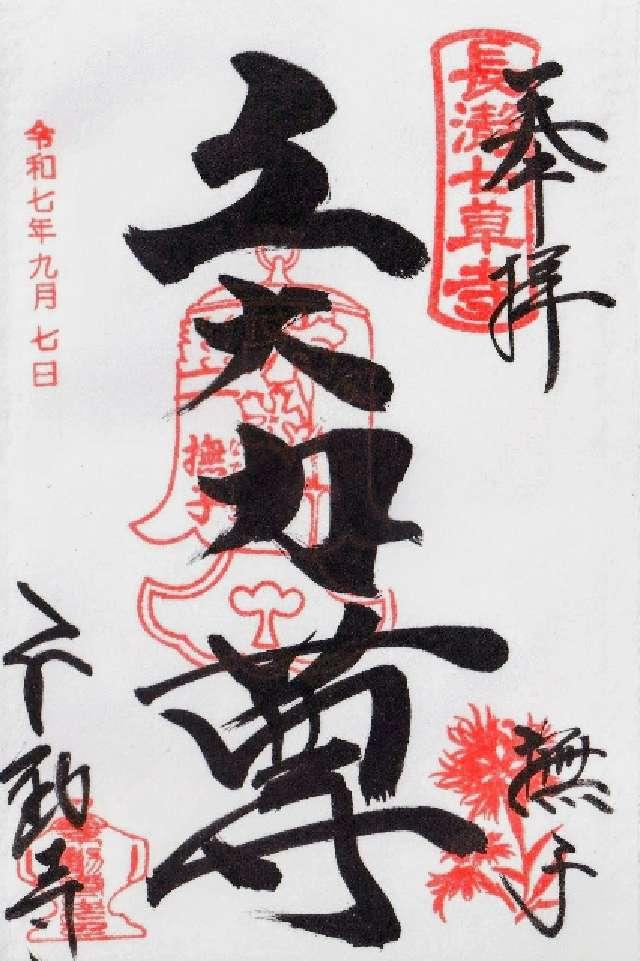 奉拝
長瀞七草寺
撫子
五大尊
撫子
令和七年九月七日
不動寺